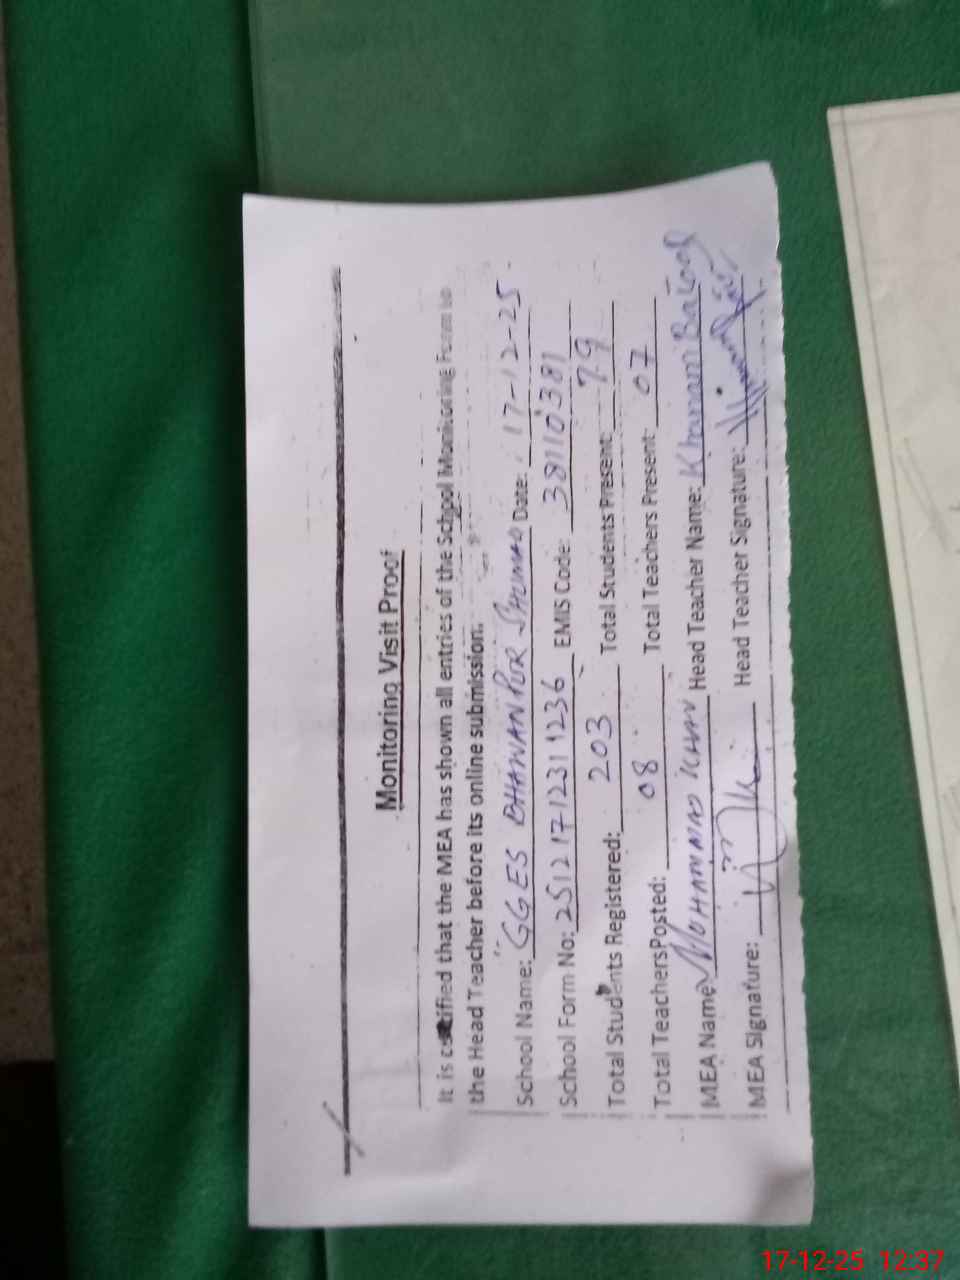 Monitoring Visit Proof
It is certified that the MEA has shown all entries of the School Monitoring Form to
the Head Teacher before its online submission.
School Name: GGES BHAWANPUR SHUMAD Date: 17-12-25
School Form No: 25121712311236 EMIS Code: 38110381
Total Students Registered: 203 Total Students Present: 79
Total TeachersPosted: 08 Total Teachers Present: 07
MEA Name: MUHAMMAD KHAN Head Teacher Name: Khanam Batool
MEA Signature: Head Teacher Signature:
17-12-25 12:37